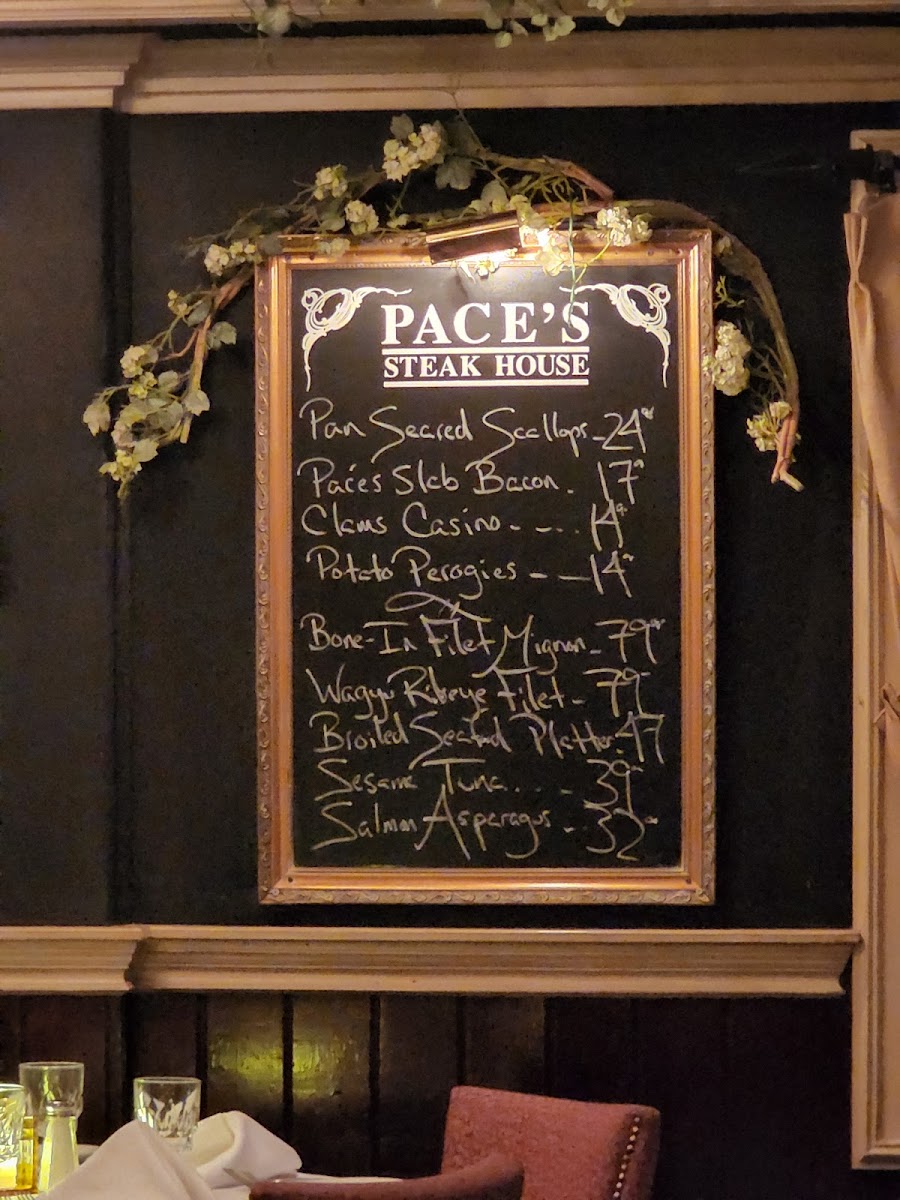 PACE'S
STEAK HOUSE
Pan Seared Scallops - 24
Pace's Slab Bacon . 17
Clams Casino - - . . 14
Potato Perogies - - 14
Bone-In Filet Mignon - 79
Wagyu Ribeye Filet - 79
Broiled Seafood Platter . 47
Sesame Tuna . . . - 39
Salmon Asparagus - . 32